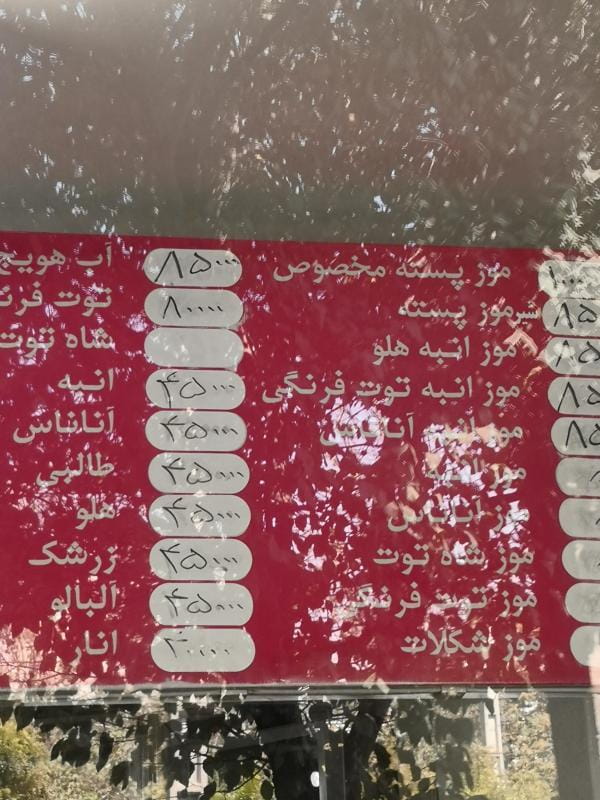 موز پسته مخصوص ۸۵۰۰۰ آب هویج
شیرموز پسته ۸۵ ۸۰۰۰۰ توت
موز انبه هلو ۸۵ شاه توت
موز انبه توت فرنگی ۸۵ ۴۵۰۰۰ انبه
موز انبه آناناس ۸۵ ۴۵۰۰۰ آناناس
موز انبه ۴۵۰۰۰ طالبی
موز آناناس ۴۵۰۰۰ هلو
موز شاه توت ۴۵۰۰۰ زرشک
موز توت فرنگی ۴۵۰۰۰ آلبالو
موز شکلات انار